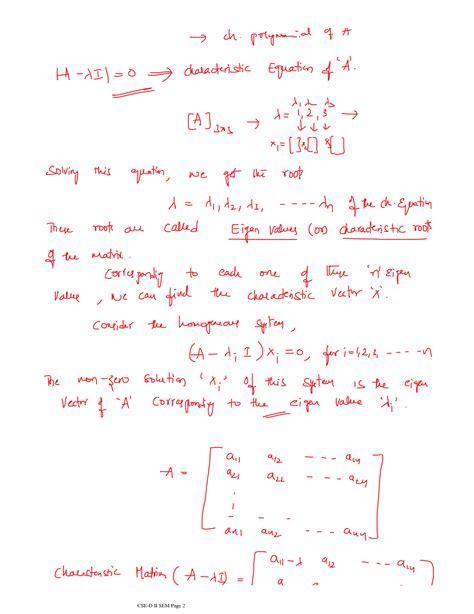 → ch. polynomial of A
|A - λI| = 0 ⟹ characteristic Equation of 'A'.
λ₁ λ₂ λ₃
[A]₃ₓ₃ → λ = 1, 2, 3 →
↓ ↓ ↓
x₁ = [ ] [ ] [ ]
Solving this equation, we get the roots
λ = λ₁, λ₂, λ₃, ---- λn of the ch. Equation
These roots are called Eigen values (or) characteristic roots
of the matrix.
Corresponding to each one of these 'n' Eigen
value, we can find the characteristic vector 'X'.
Consider the homogeneous system,
(A - λᵢ I) xᵢ = 0, for i = 1, 2, 3, ---- n
The non-zero solution 'xᵢ' of this system is the eigen
vector of 'A' corresponding to the eigen value 'λᵢ'.
a₁₁ a₁₂ --- a₁n
A = a₂₁ a₂₂ --- a₂n
an₁ an₂ --- ann
Characteristic Matrix (A - λI) = [ a₁₁-λ a₁₂ --- a₁n
CSE-D II SEM Page 2